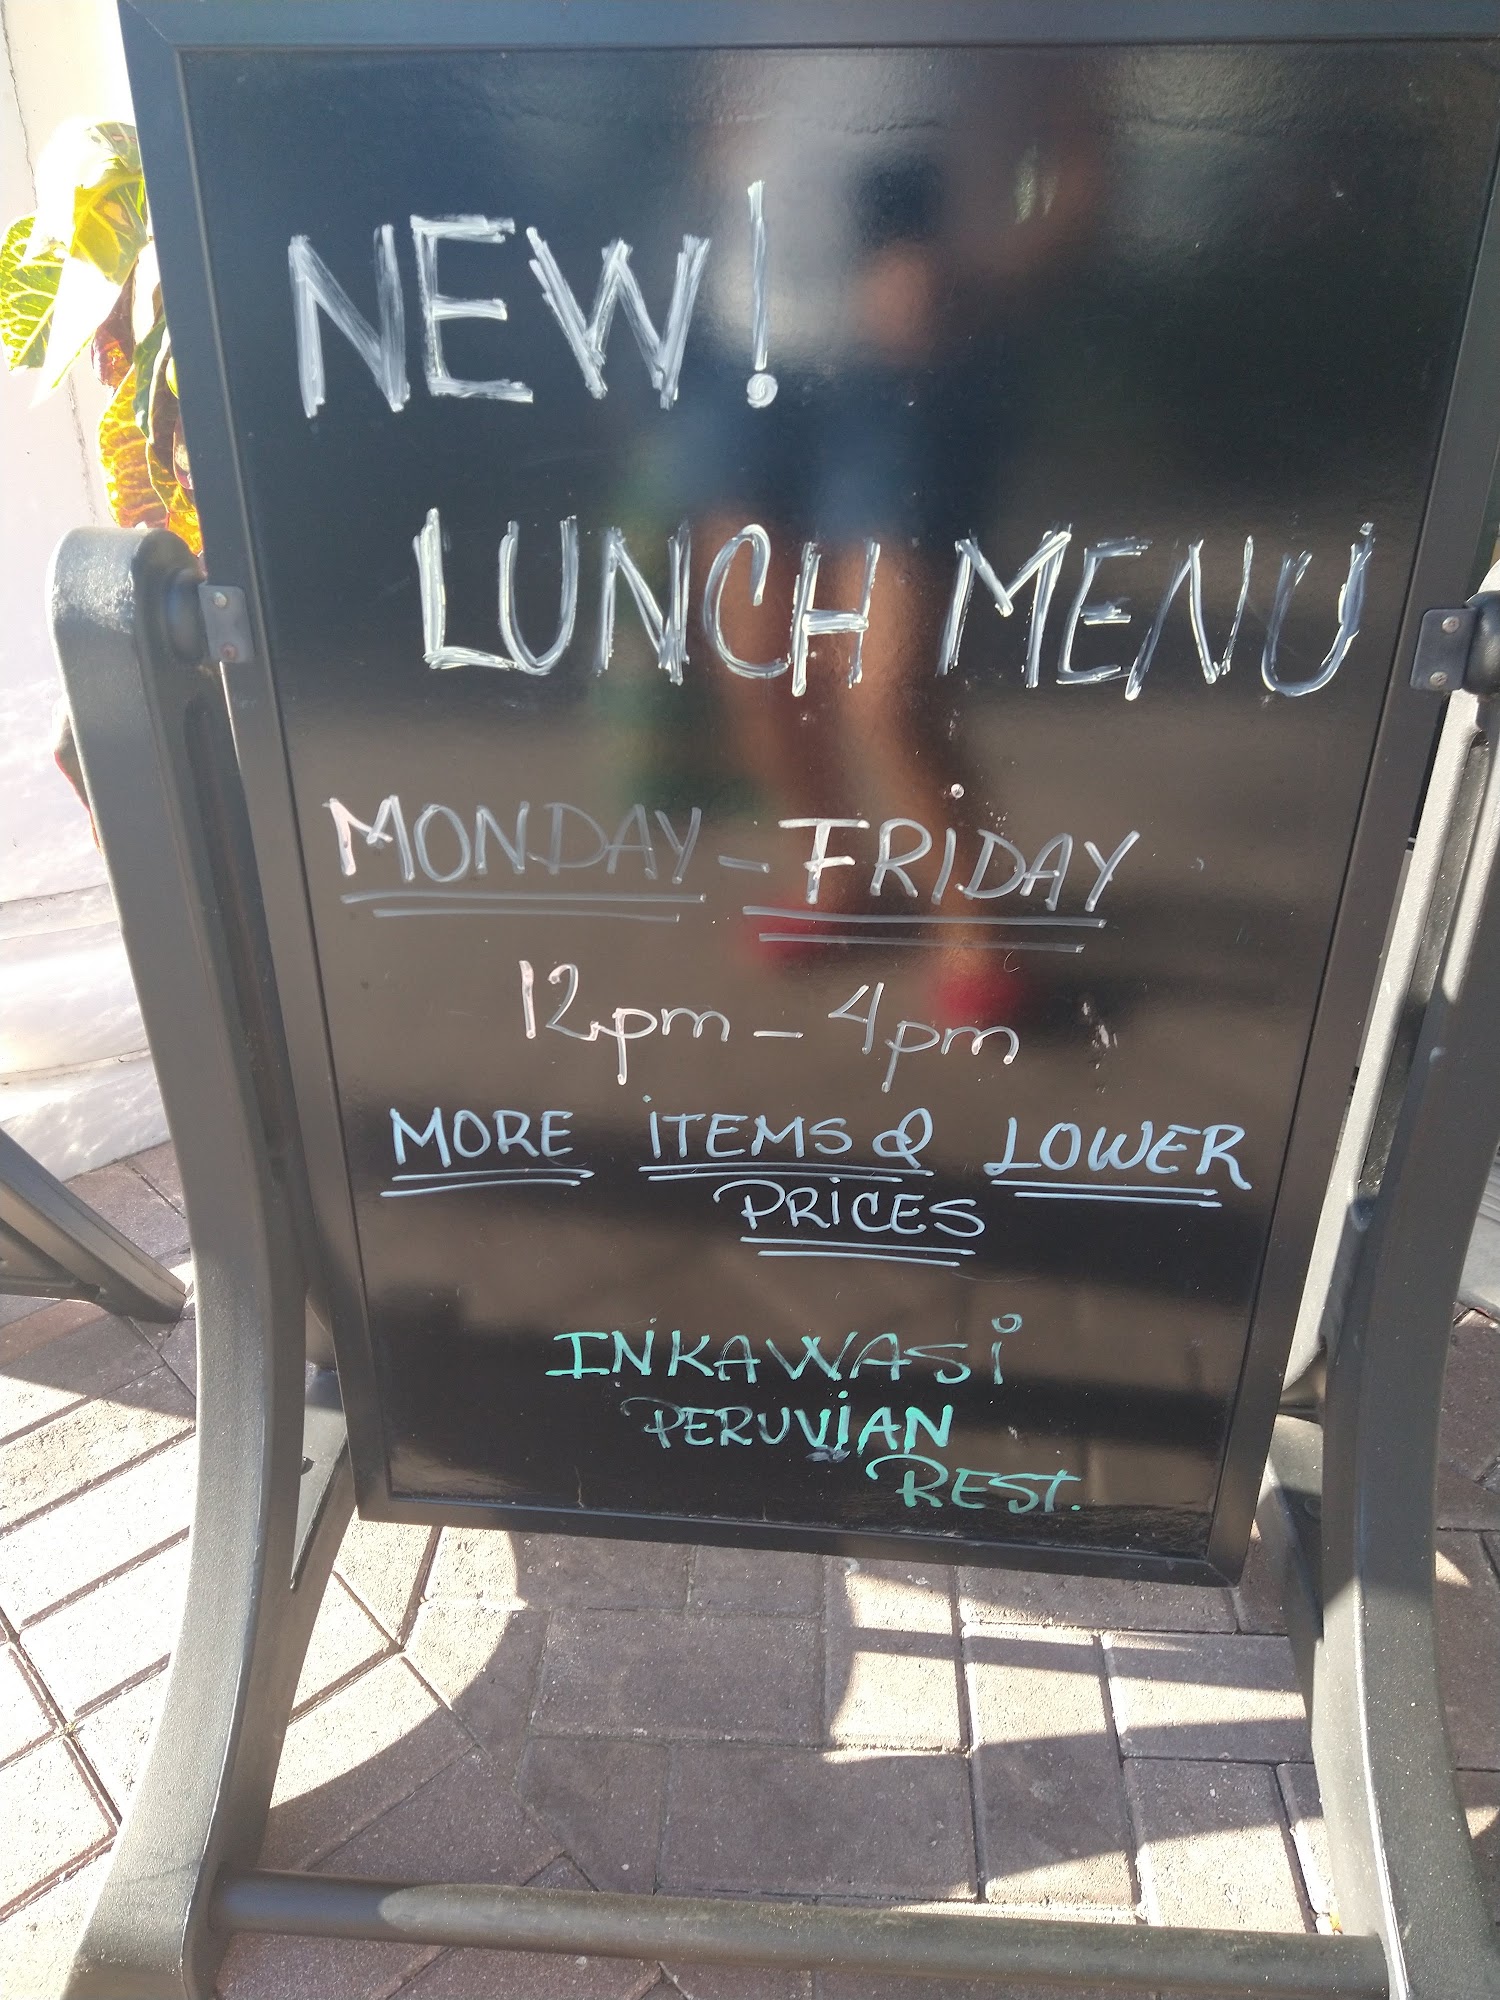 NEW!
LUNCH MENU
MONDAY - FRIDAY
12pm - 4pm
MORE ITEMS & LOWER
PRICES
INKAWASI
PERUVIAN
REST.